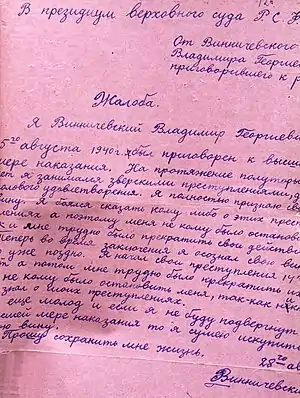 128
В президиум верховного суда Р.С.Ф
От Винничевского
Владимира Георгие
приговорившего к р
Жалоба.
Я Винничевский Владимир Георгиеви
5го августа 1940г. я был приговорен к высш
мере наказания. На протяжение полуторы
ет я занимался зверскими преступлениями, д
олового удовлетворения. Я полностью признаю се
вину. Я боялся сказать кому либо о этих прест
плениях а поэтому меня не кому было останов
и мне трудно было прекратить свои действ
Теперь во время заключения я осознал свою вин
уже поздно. Я начал свои преступления
а потом мне трудно было прекратить и
не кому было остановить меня, так-как н кто
знал о моих преступлениях.
еще молод и если я не буду подвергнут
шей мере наказания то я сумею искупить
ою вину.
Прошу сохранить мне жизнь.
28го ав
Винничевски